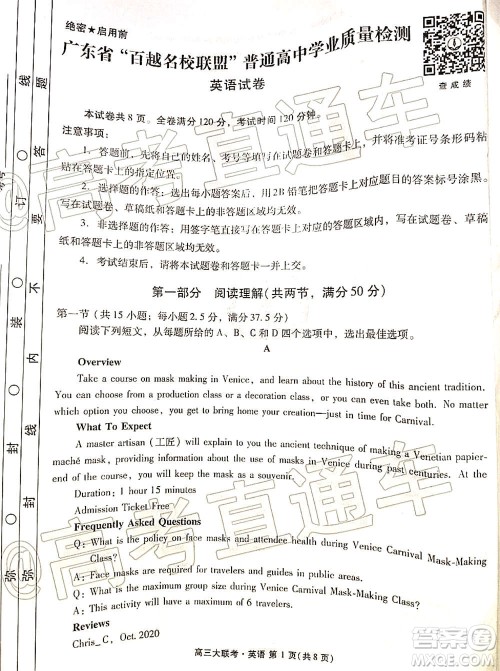 绝密★启用前
广东省“百越名校联盟”普通高中学业质量检测
英语试卷
查成绩
本试卷共8页。全卷满分120分，考试时间120分钟。
注意事项：
1. 答题前，先将自己的姓名、考号等填写在试题卷和答题卡上，并将准考证号条形码粘
贴在答题卡上的指定位置。
2. 选择题的作答：选出每小题答案后，用2B铅笔把答题卡上对应题目的答案标号涂黑。
写在试卷、草稿纸和答题卡上的非答题区域均无效。
3. 非选择题的作答：用签字笔直接写在答题卡上对应的答题区域内，写在试卷、草稿
纸和答题卡上的非答题区域均无效。
4. 考试结束后，请将本试题卷和答题卡一并上交。
第一部分 阅读理解(共两节，满分50分)
第一节 (共15小题；每小题2.5分，满分37.5分)
阅读下列短文，从每题所给的A、B、C和D四个选项中，选出最佳选项。
A
Overview
Take a course on mask making in Venice, and learn about the history of this ancient tradition.
You can choose from a production class or a decoration class, or you can even take both. No
matter which one you select, you get to bring home your creation—just in time for Carnival.
What To Expect
A master artisan (工匠) will explain to you the ancient technique of making a Venetian papier-
maché mask, and provide information about the use of masks in Venice during past centuries. At the
end of class, you will keep the mask as a souvenir.
Duration: 1 hour 15 minutes
Admission Ticket Free
Frequently Asked Questions
Q: What is the policy on face masks and attendee health during Venice Carnival Mask-Making
Class?
A: Face masks are required for travelers and guides in public areas.
Q: What is the maximum group size during Venice Carnival Mask-Making Class?
A: This activity will have a maximum of 6 travelers.
Reviews
Chris_C, Oct. 2020
高三大联考·英语 第1页(共8页)
线 题
订 答
要
装 不
内
封 线
封
弥 弥
高考直通车
高考直通车